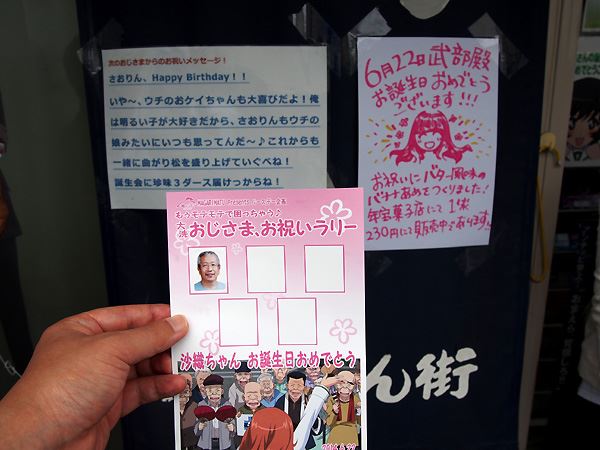 渋のおじさまからのお祝いメッセージ！
さおりん、Happy Birthday！！
いや～、ウチのおケイちゃんも大喜びだよ！俺
は明るい子が大好きだから、さおりんもウチの
娘みたいにいつも思ってんだ～♪これからも
一緒に曲がり松を盛り上げていくべね！
誕生会に珍味３ダース届けっからね！
6月22日 武部殿
お誕生日 おめでとう
ございます!!!
お祝いにバター風味の
バナナあめをつくりました！
年宝菓子店にて 1袋
230円にて販売中であります!!
MAGARIMATU Presents バースデー企画
もうモテモテで困っちゃう♪
大洗おじさま、お祝いラリー
沙織ちゃん お誕生日おめでとう
ん街